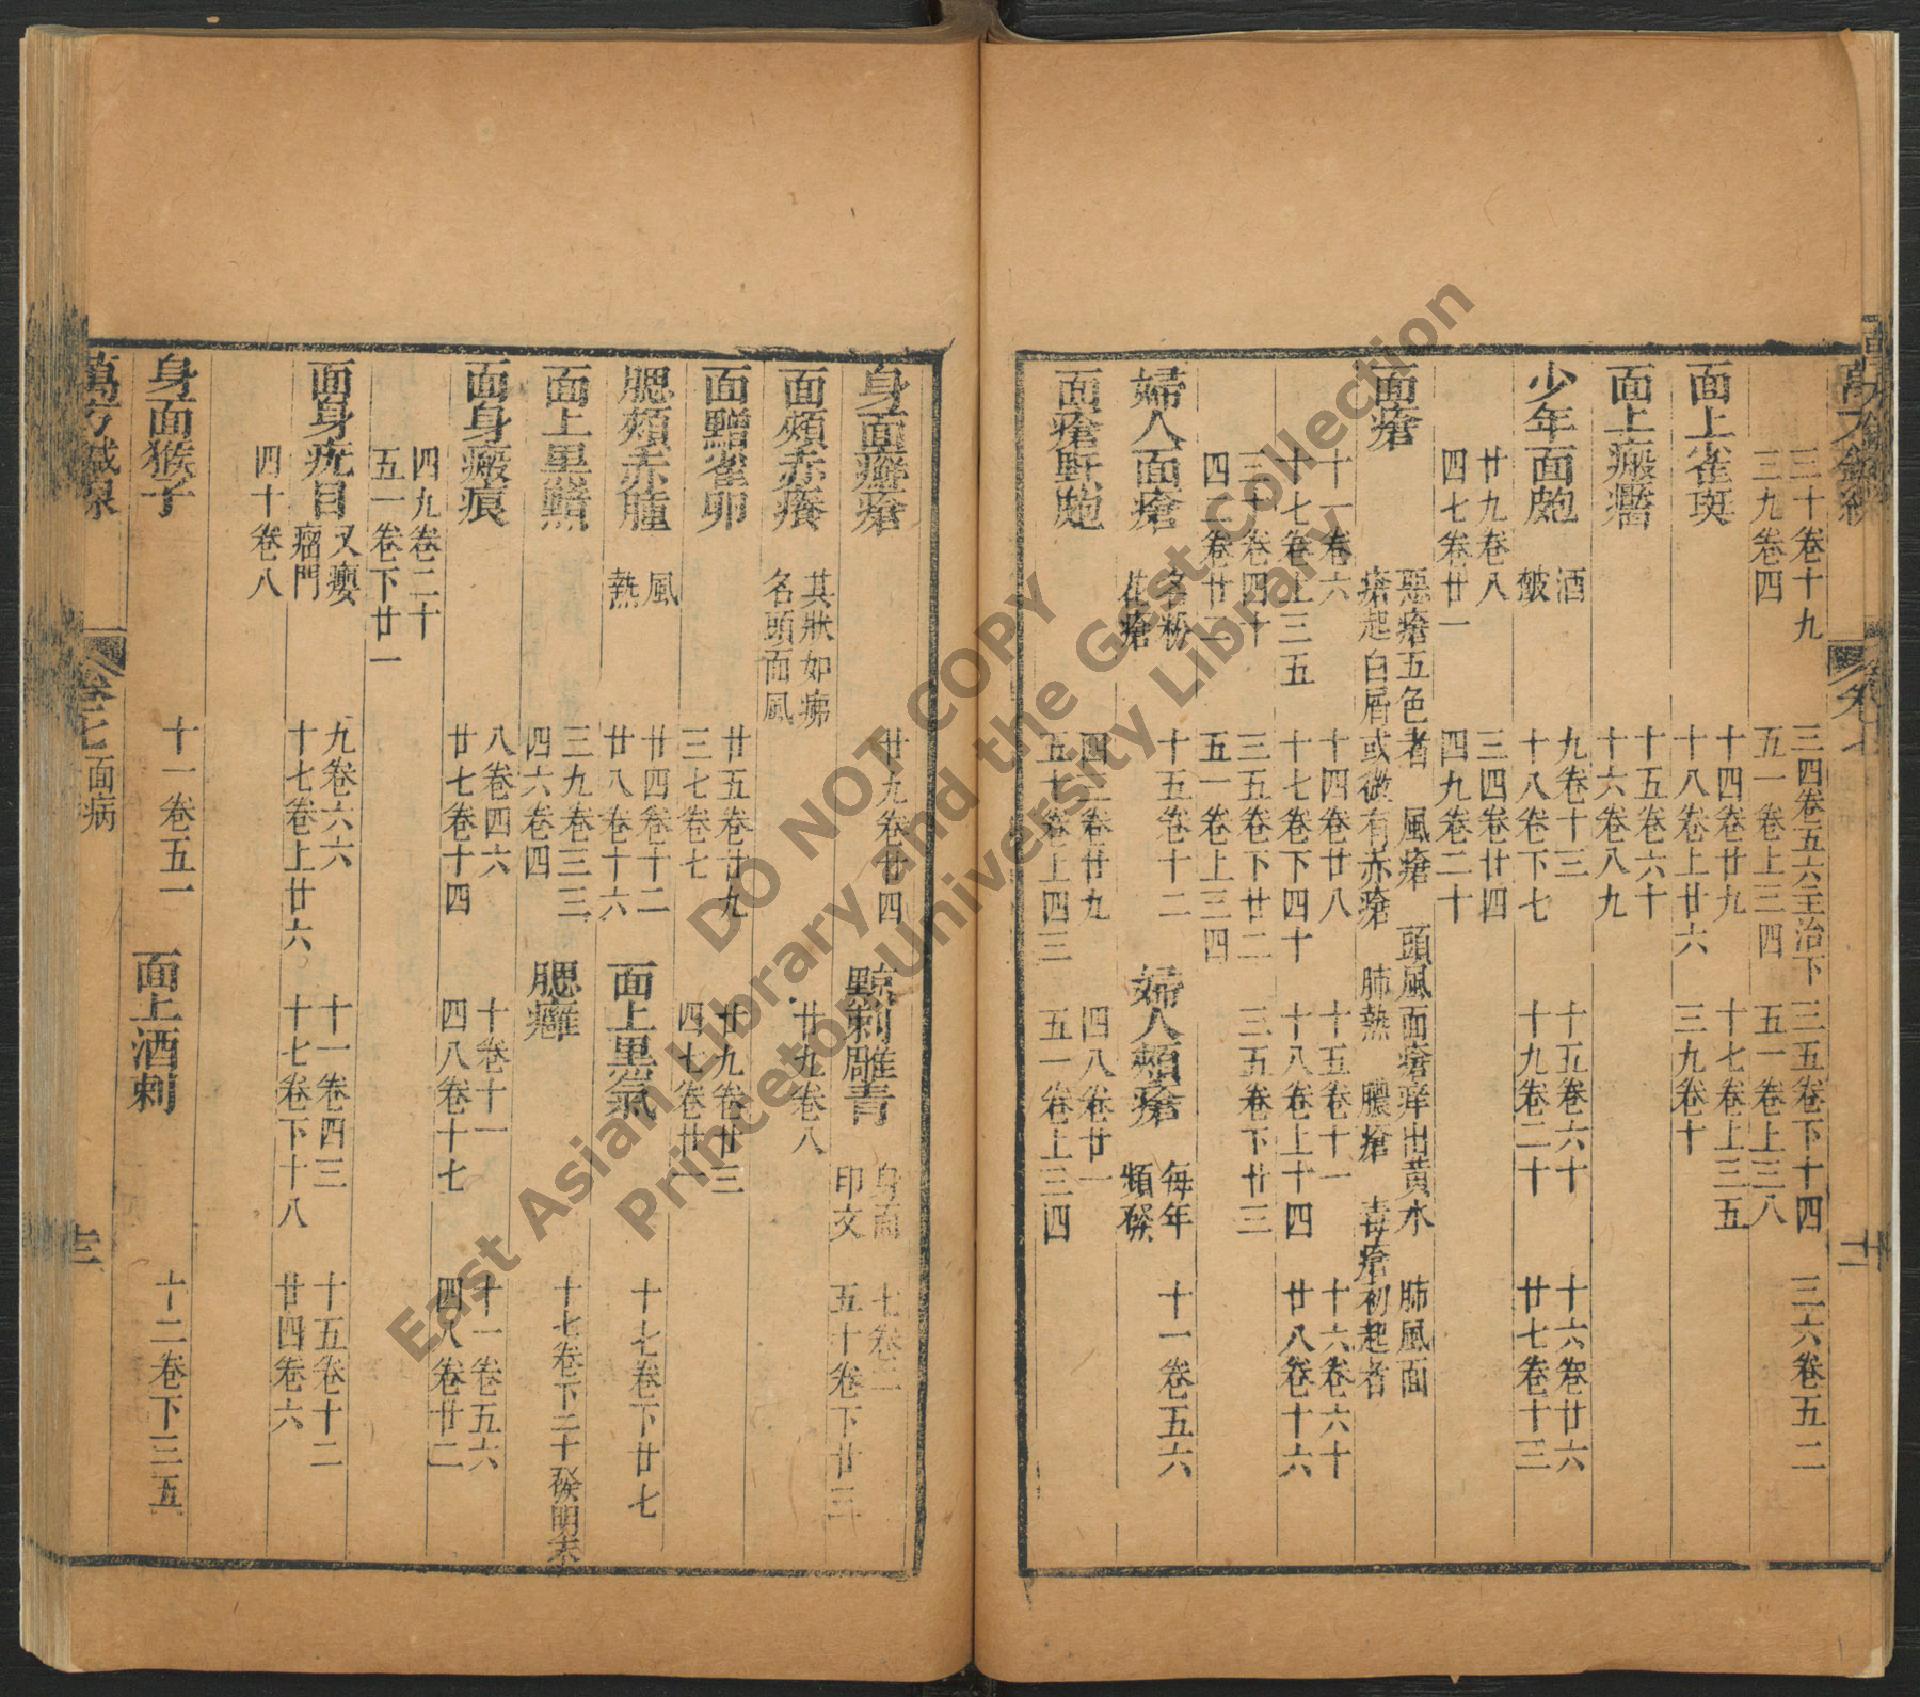 三十卷十九 三四卷五六主治下 三五卷下十四 三六卷五二
三九卷四 五一卷上三四 五一卷上三八
面上雀斑 十四卷廿九 十七卷上三五
十八卷上廿六 三九卷十
面上瘢㿗 十五卷六十
十六卷八九
少年面皰 酒皶 九卷十三 十五卷六十 十六卷廿六
十八卷下七 十九卷二十 廿七卷十三
廿九卷八 三四卷廿四
四七卷廿一 四九卷二十
面瘡 惡瘡五色者 風瘡 頭風面瘡痒出黃水 肺風面
瘡起白屑或微有赤瘡 肺熱 膿瘡 毒瘡初起者
十一卷六 十四卷廿八 十五卷十一 十六卷六十
十七卷上三五 十七卷下四十 十八卷上十四 廿八卷十六
三十卷四十 三五卷下廿二 三五卷下廿三
四二卷廿二 五一卷上三四
婦人面瘡 名粉花瘡 十五卷十二 婦人頰瘡 每年頰發 十一卷五六
面瘡䵟皰 卷廿九 四八卷廿一
卷上四三 五一卷上三四
身面癬瘡 廿九卷廿四 黥刺雕青 身面印文 七卷二
五十卷下廿三
面頰赤癢 其狀如痱
名頭面風 廿九卷八
面䵴雀卵 廿五卷廿九 廿九卷廿三
三七卷七 四七卷廿一
腮頰赤腫 風熱 廿四卷十二 面上黑氣 十七卷下廿七
廿八卷十六
面上黑 三九卷三三 腮癰 十七卷下二十發明末
四六卷四
面身瘢痕 八卷四六 十卷十一 十一卷五六
廿七卷十四 四八卷十七 四八卷廿二
四九卷二十
五一卷下廿一
面身疣目 又癭瘤門 九卷六六 十一卷四三 十五卷十二
十七卷上廿六 十七卷下十八 廿四卷六
四十卷八
身面猴子 十一卷五一 面上酒刺 十二卷下三五
萬方鍼線 卷七 面病 十三
East Asian Library and the Gest Collection
DO NOT COPY
Princeton University Library